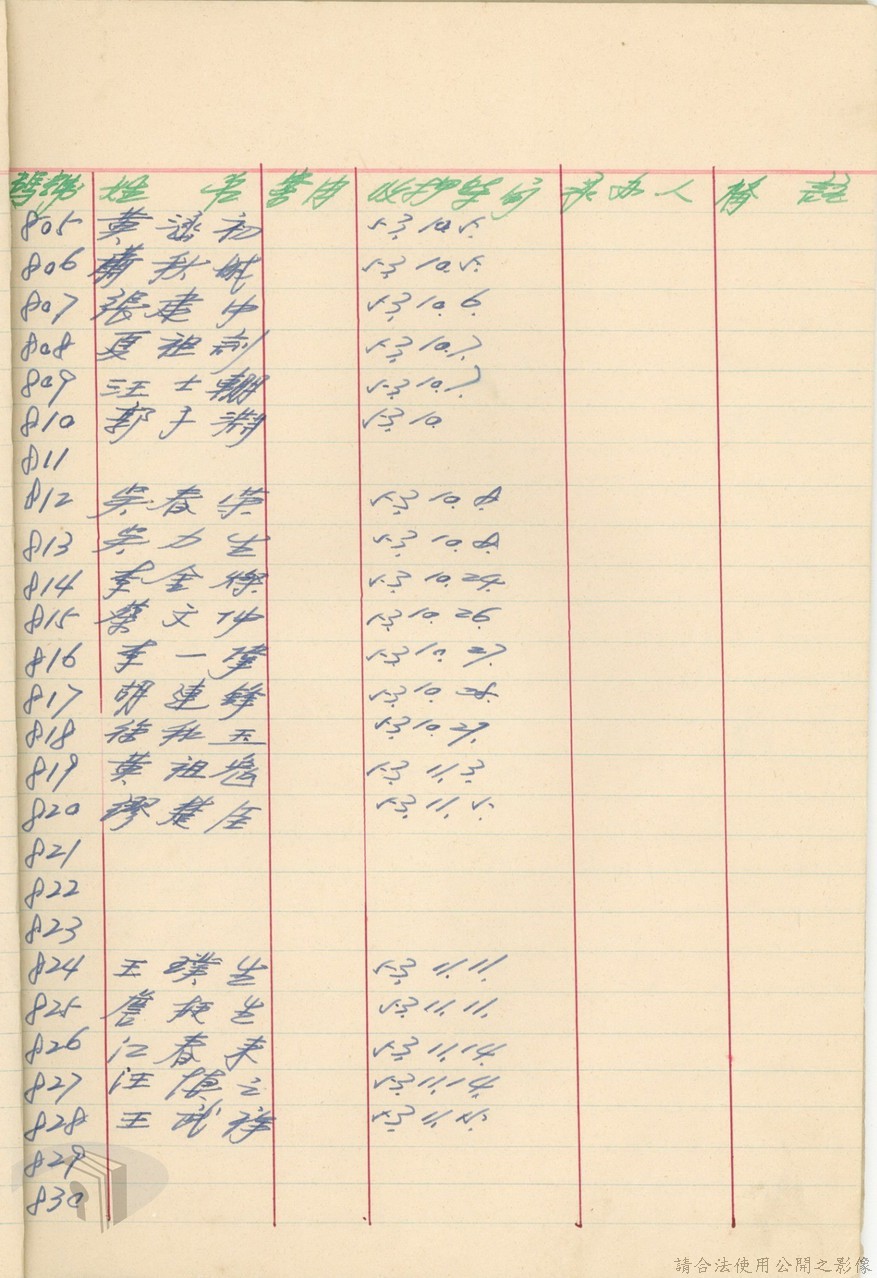 號碼 姓名 事由 收押年 承办人 備註
805 黃 初 53. 10. 5.
806 蕭秋 53. 10. 5.
807 張建中 53. 10. 6.
808 夏祖 53. 10. 7.
809 汪士 53. 10. 7.
810 郭子淵 53. 10.
811
812 吳春榮 53. 10. 8.
813 吳力生 53. 10. 8.
814 李金傑 53. 10. 24.
815 蔡文仲 53. 10. 26.
816 李一 53. 10. 27.
817 胡連鋒 53. 10. 28.
818 徐秋玉 53. 10. 29.
819 黃祖 53. 11. 3.
820 繆楚全 53. 11. 5.
821
822
823
824 王璞生 53. 11. 11.
825 詹 生 53. 11. 11.
826 江春來 53. 11. 14.
827 汪慎之 53. 11. 14.
828 王武祥 53. 11.
829
830
請合法使用公開之影像